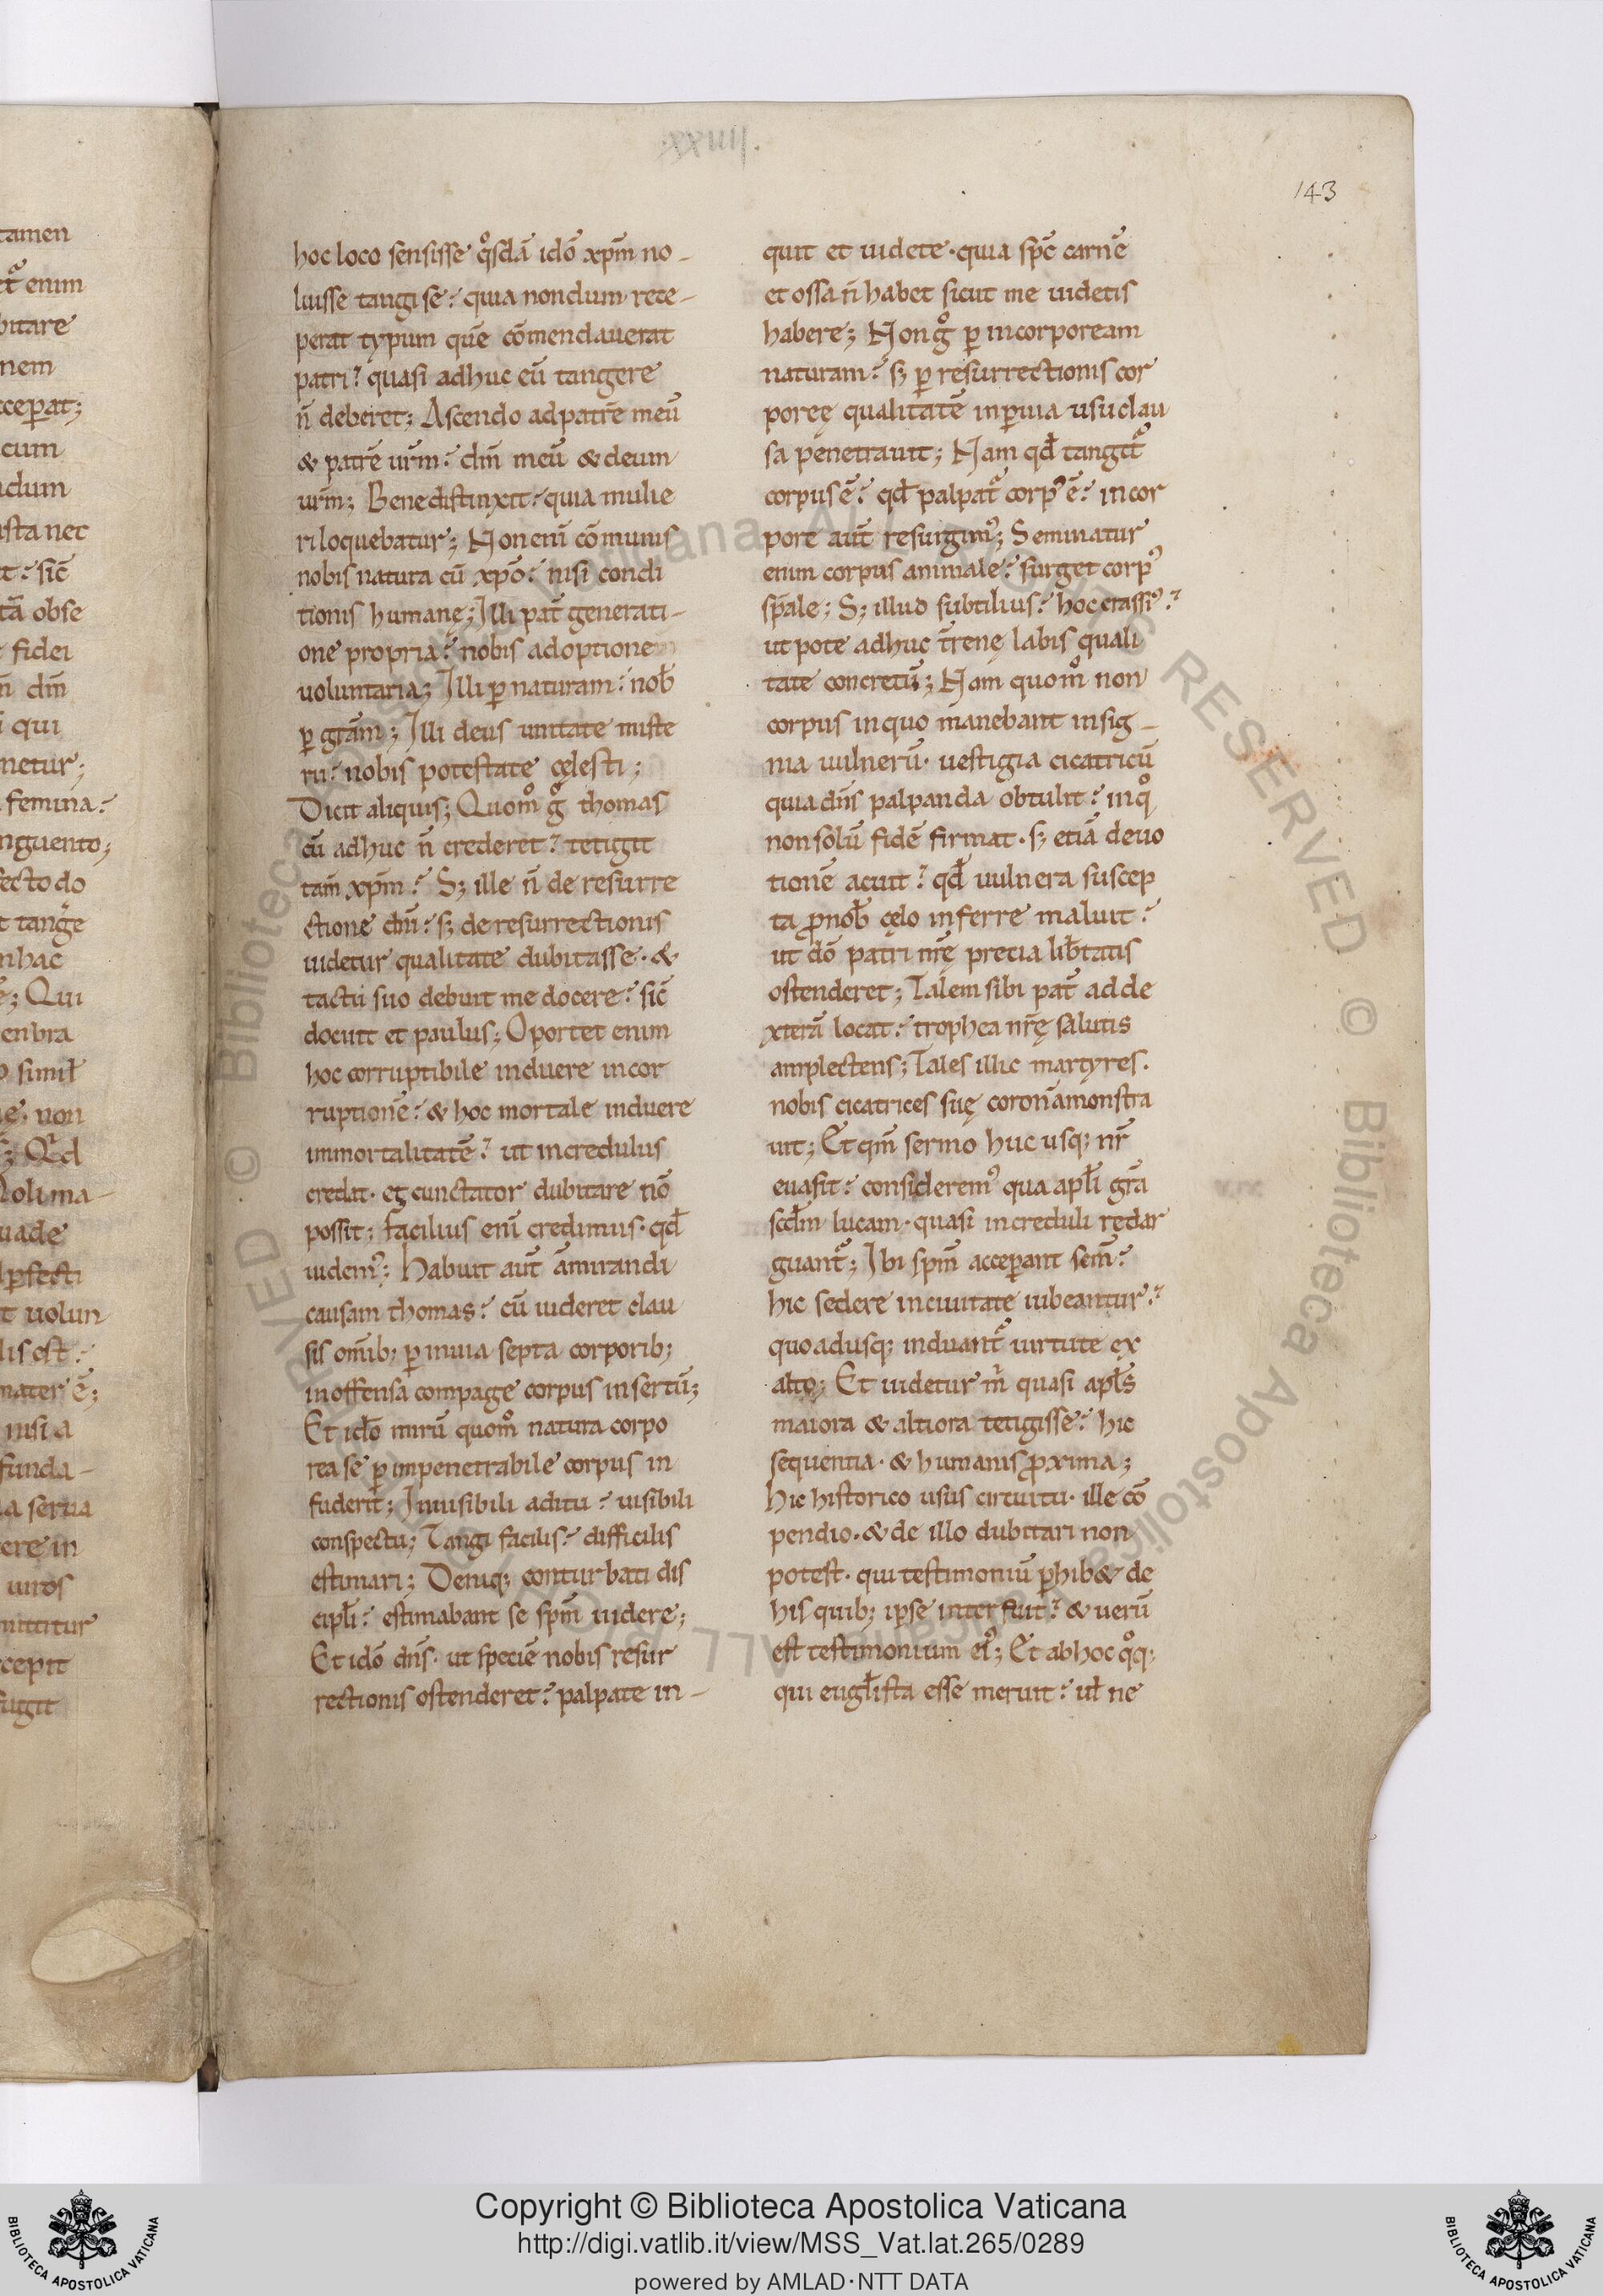 .xxiiij.
143
hoc loco sensisse q̊sdā idō xp̄m no-
luisse tangi se? quia nondum rece-
perat typum quē cōmendauerat
patri? quasi adhuc eū tangere
n̄ deberet; Ascendo ad patrē meū
& patrē ur̄m? dm̄ meū & deum
ur̄m; Bene distinxit? quia mulie
ri loquebatur; Non eni cōmunis
nobis natura cū xp̄o? nisi condi
tionis humanę; Illi pat̄ generati-
one propria? nobis adoptione
uoluntaria; Illi ꝑ naturam? nob̄
ꝑ gr̄am; Illi deus unitate miste
rii? nobis potestate cęlesti;
Dicit aliquis; Quom̊ g̊ thomas
cū adhuc n̄ crederet? tetigit
tam̄ xp̄m? S; ille n̄ de resurre
ctione dn̄i? s; de resurrectionis
uidetur qualitate dubitasse. &
tactu suo debuit me docere? sic̄
docuit et paulus; Oportet enim
hoc corruptibile induere incor
ruptionē? & hoc mortale induere
immortalitatē? ut incredulus
credat. et cunctator dubitare nō
possit; facilius eni credimus. qđ
uidemꝰ; Habuit aut̄ āmirandi
causam thomas? cū uideret clau
sis om̄ib; ꝑ inuia septa corporib;
inoffensa compage corpus insertū;
Et idō mirū quom̊ natura corpo
rea se ꝑ impenetrabile corpus in
fuderit; Inuisibili aditu? uisibili
conspectu; Tangi facilis? difficilis
estimari; Deniq; conturbati dis
cipl̄i? estimabant se sp̄m uidere;
Et idō dn̄s. ut speciē nobis resur
rectionis ostenderet? palpate in-
quit et uidete. quia sp̄c carnē
et ossa n̄ habet sicut me uidetis
habere; Non g̊ ꝑ incorpoream
naturam? s; ꝑ resurrectionis cor
poreę qualitatē inꝑuia usu clau
sa penetrauit; Nam qđ tangit᷑
corpus ē? qđ palpat᷑ corpꝰ ē? in cor
pore aut̄ resurgimꝰ; Seminatur
enim corpus animale? surget corpꝰ
sp̄ale; S; illud subtilius? hoc crassiꝰ?
ut pote adhuc t̄renę labis quali
tate concretū; Nam quom̊ non
corpus in quo manebant insig-
nia uulnerū. uestigia cicatricū
quia dn̄s palpanda obtulit? in q̊
non solū fidē firmat. s; etiā deuo
tionē acuit? qđ uulnera suscep
ta ꝓ nob̄ cęlo inferre maluit?
ut dō patri nr̄ę precia lib̄tatis
ostenderet; Talem sibi pat̄ ad de
xterā locat? trophea nr̄ę salutis
amplectens; Tales illic martyres.
nobis cicatrices suę coronā monstra
uit; Et qm̄ sermo huc usq; nr̄
euasit? consideremꝰ qua apl̄i gr̄a
scđm lucam. quasi increduli redar
guant᷑; Ibi sp̄m acceperant sem̄?
hic sedere in ciuitate iubeantur?
quo adusq; induant᷑ uirtute ex
alto; Et uidetur m̄ quasi apl̄s
maiora & altiora tetigisse? hic
sequentia. & humanis ꝓxima;
Hic historico usus circuitu. ille cō
pendio. & de illo dubitari non
potest. qui testimoniū ꝑhib& de
his quib; ipse interfuit? & uerū
est testimonium eiꝰ; Et ab hoc q̊q;
qui eugl̄ista esse meruit? ul̄ ne
Copyright © Biblioteca Apostolica Vaticana
http://digi.vatlib.it/view/MSS_Vat.lat.265/0289
powered by AMLAD·NTT DATA
BIBLIOTECA APOSTOLICA VATICANA
BIBLIOTECA APOSTOLICA VATICANA